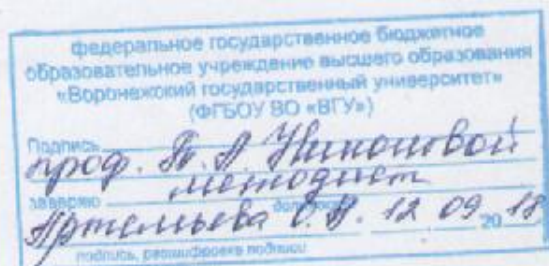 федеральное государственное бюджетное
образовательное учреждение высшего образования
«Воронежский государственный университет»
(ФГБОУ ВО «ВГУ»)
Подпись
проф. Т. А. Никоновой
заверяю методист
должность
Артемьева О.В. 12 09 20 18
подпись, расшифровка подписи